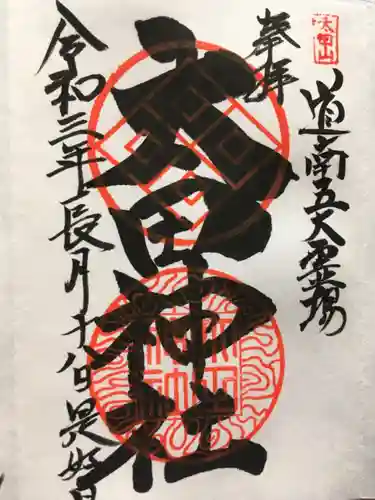 道南五大霊場
奉拝
太田神社
令和三年長月十八日是好日
太田山